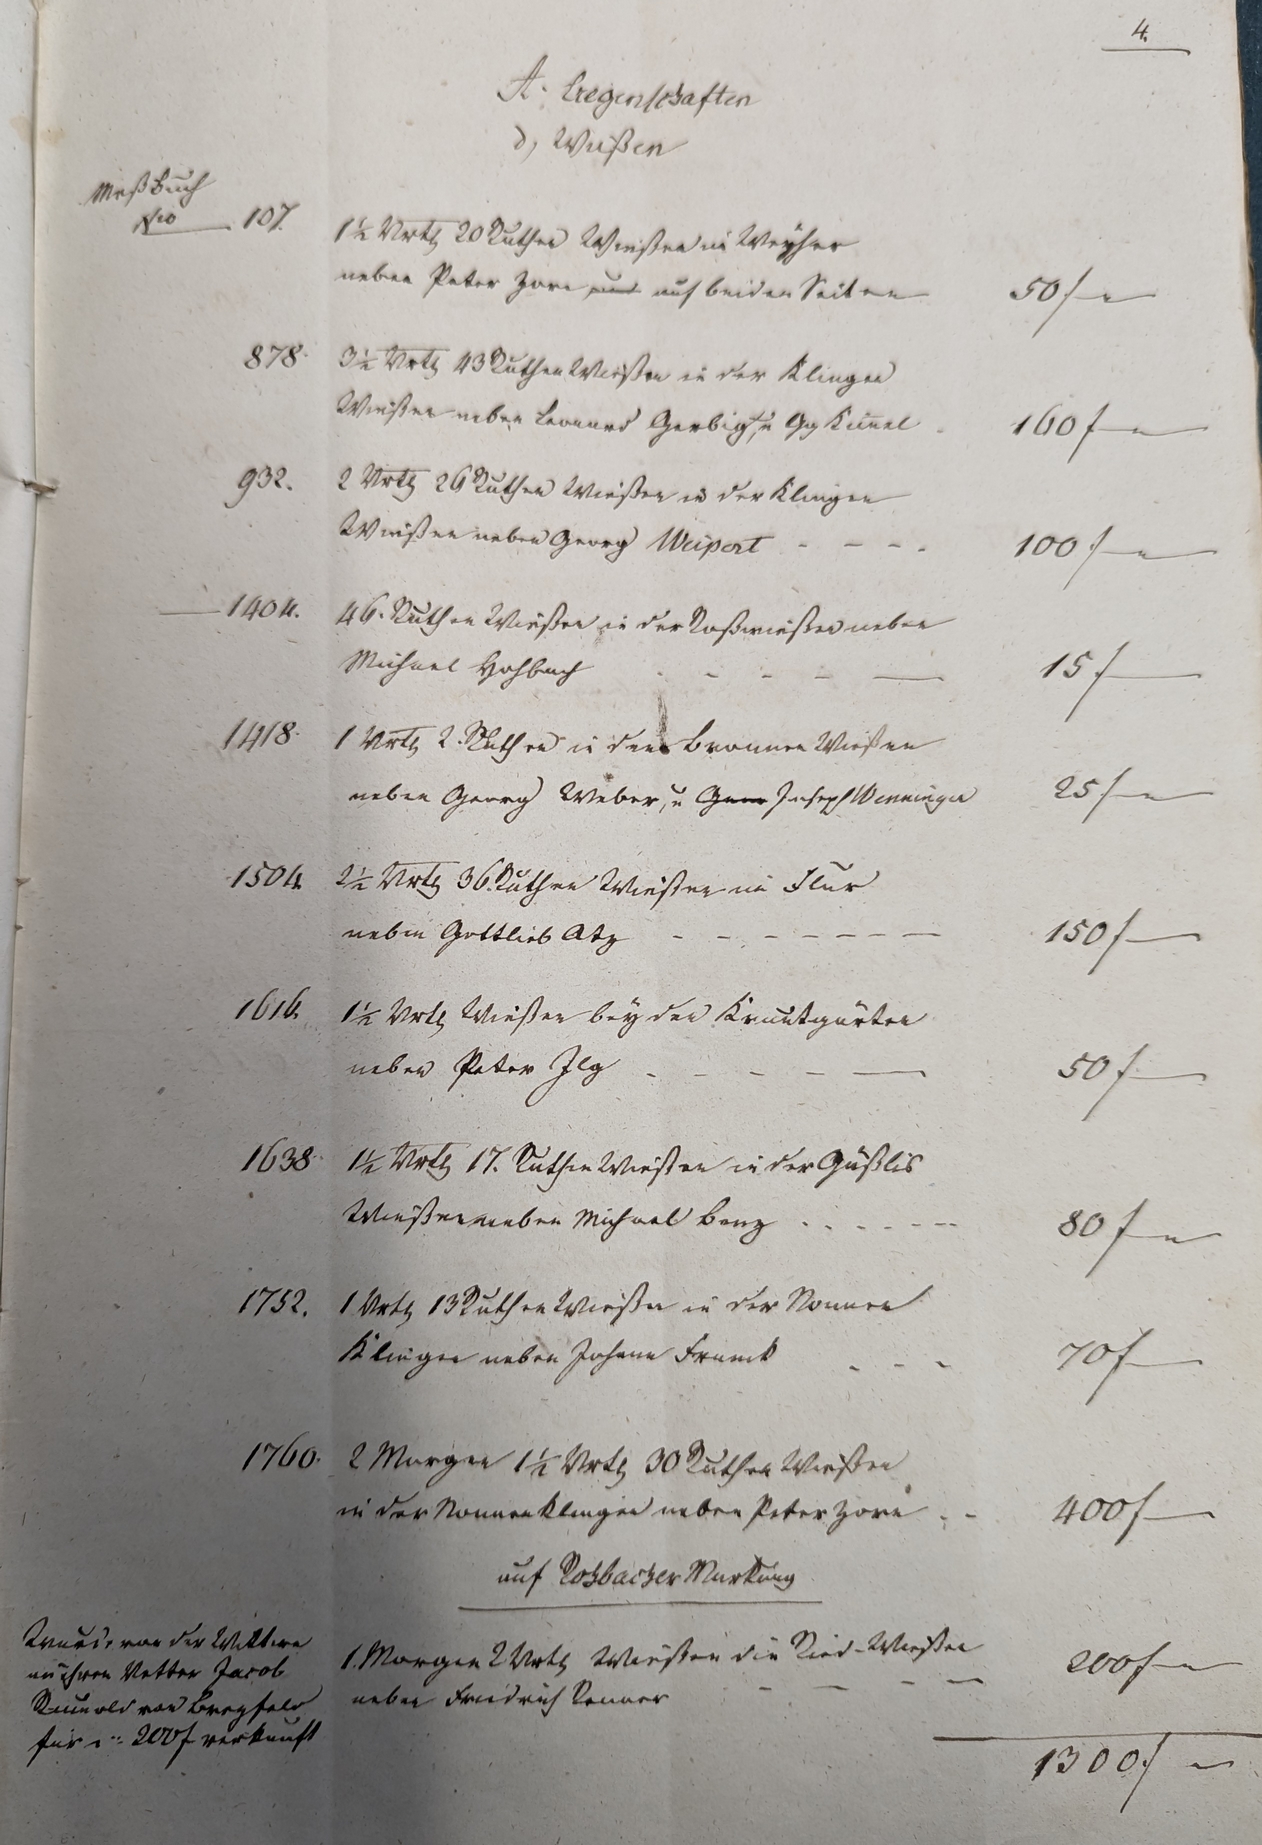 4.
A. Liegenschaften
d, Wießen
Meßbuch
Nro 107. 1½ Vrtl 20 Ruthen Wießen im Weyher
neben Peter Zorn und auf beiden Seiten — 50 f —
878. 3½ Vrtl 43 Ruthen Wießen in der Klingen
Wießen neben Leonard Gerbig, u Gg Kunel . 160 f —
932. 2 Vrtl 26 Ruthen Wießen in der Klingen
Wießen neben Georg Weipert - - - - 100 f —
1404. 46. Ruthen Wießen in der Roßwießen neben
Michael Hohbach - - - - — 15 f —
1418. 1 Vrtl 2. Ruthen in den Bronnen Wießen
neben Georg Weber, u Joseph Wenninger 25 f —
1504. 2½ Vrtl 36 Ruthen Wießen im Flur
neben Gottlieb Atz - - - - - - - 150 f —
1616. 1½ Vrtl Wießen bey den Krautgärten
neben Peter Ilg - - - - - — 50 f —
1638. 1½ Vrtl 17. Ruthen Wießen in der Gäßlis
Wießen neben Michael Benz - - - - - - 80 f —
1752. 1 Vrtl 13 Ruthen Wießen in der Nonnen
Klingen neben Johann Franck - - - 70 f —
1760. 2 Morgen 1½ Vrtl 30 Ruthen Wießen
in der Nonnenklingen neben Peter Zorn - - 400 f —
auf Rohbacher Markung
1. Morgen 2 Vrtl Wießen die Ried-Wießen 200 f —
neben Friedrich Renner - - - —
wurde von der Wittwe
an ihren Vetter Jacob
von
für 200 f verkauft
1300 f —